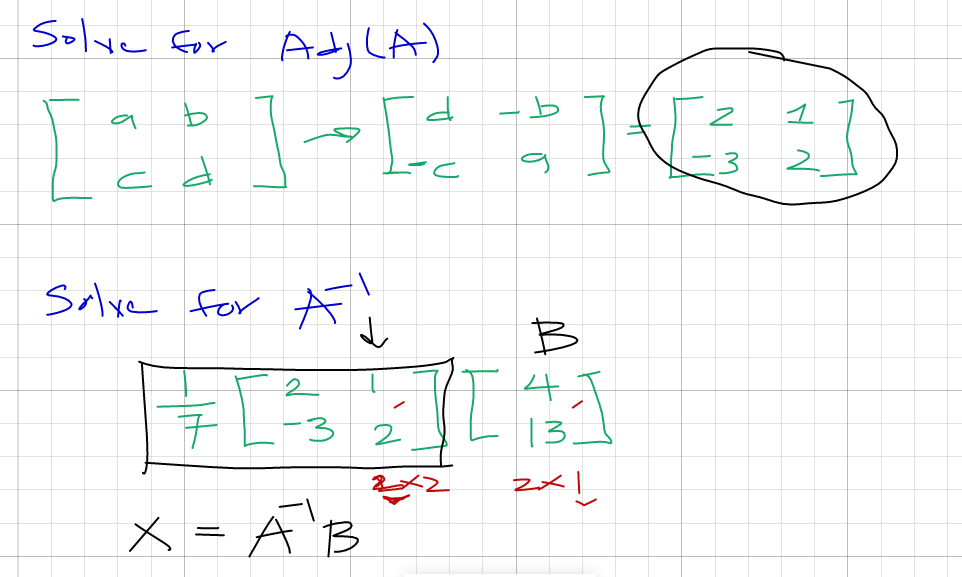 Solve for Adj(A)
[ a b ] → [ d -b ] = [ 2 1 ]
[ c d ] [ -c a ] [ -3 2 ]
Solve for A⁻¹
↓ B
1/7 [ 2 1 ] [ 4 ]
[ -3 2 ] [ 13 ]
2×2 2×1
X = A⁻¹B